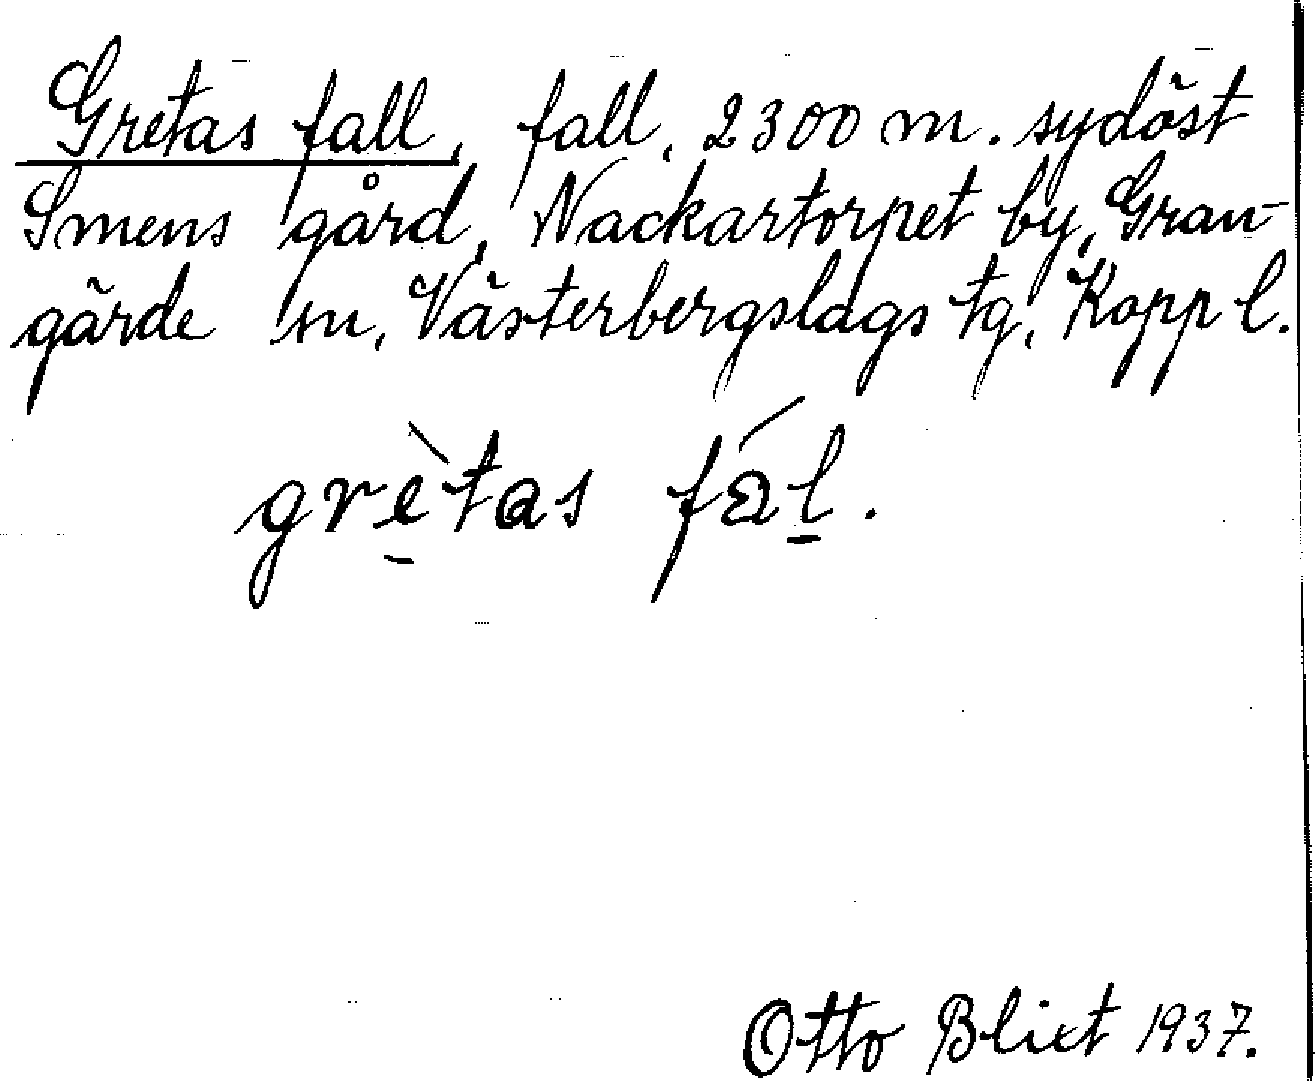 Gretas fall, fall, 2300 m. sydöst
Smens gård, Nackartorpet by, Gran-
gärde sn, Västerbergslags tg, Kopp l.
grètas fál.
Otto Blixt 1937.